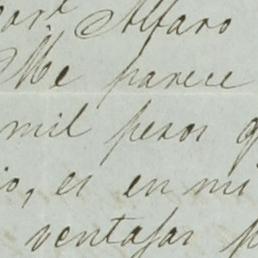 Alfaro
Me parece
mil pesos
io, es en mi
ventajas